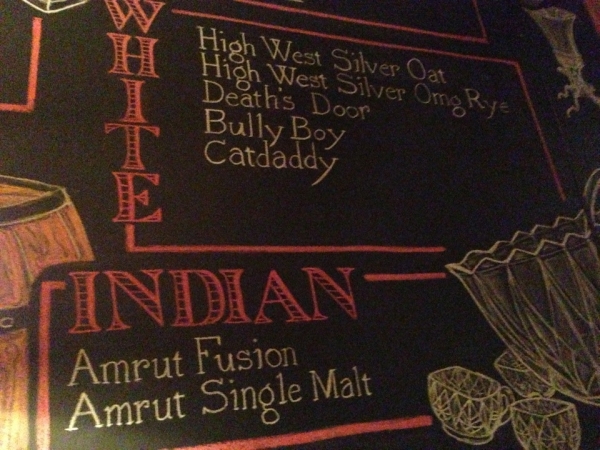 WHITE
High West Silver Oat
High West Silver Omg Rye
Death's Door
Bully Boy
Catdaddy
INDIAN
Amrut Fusion
Amrut Single Malt